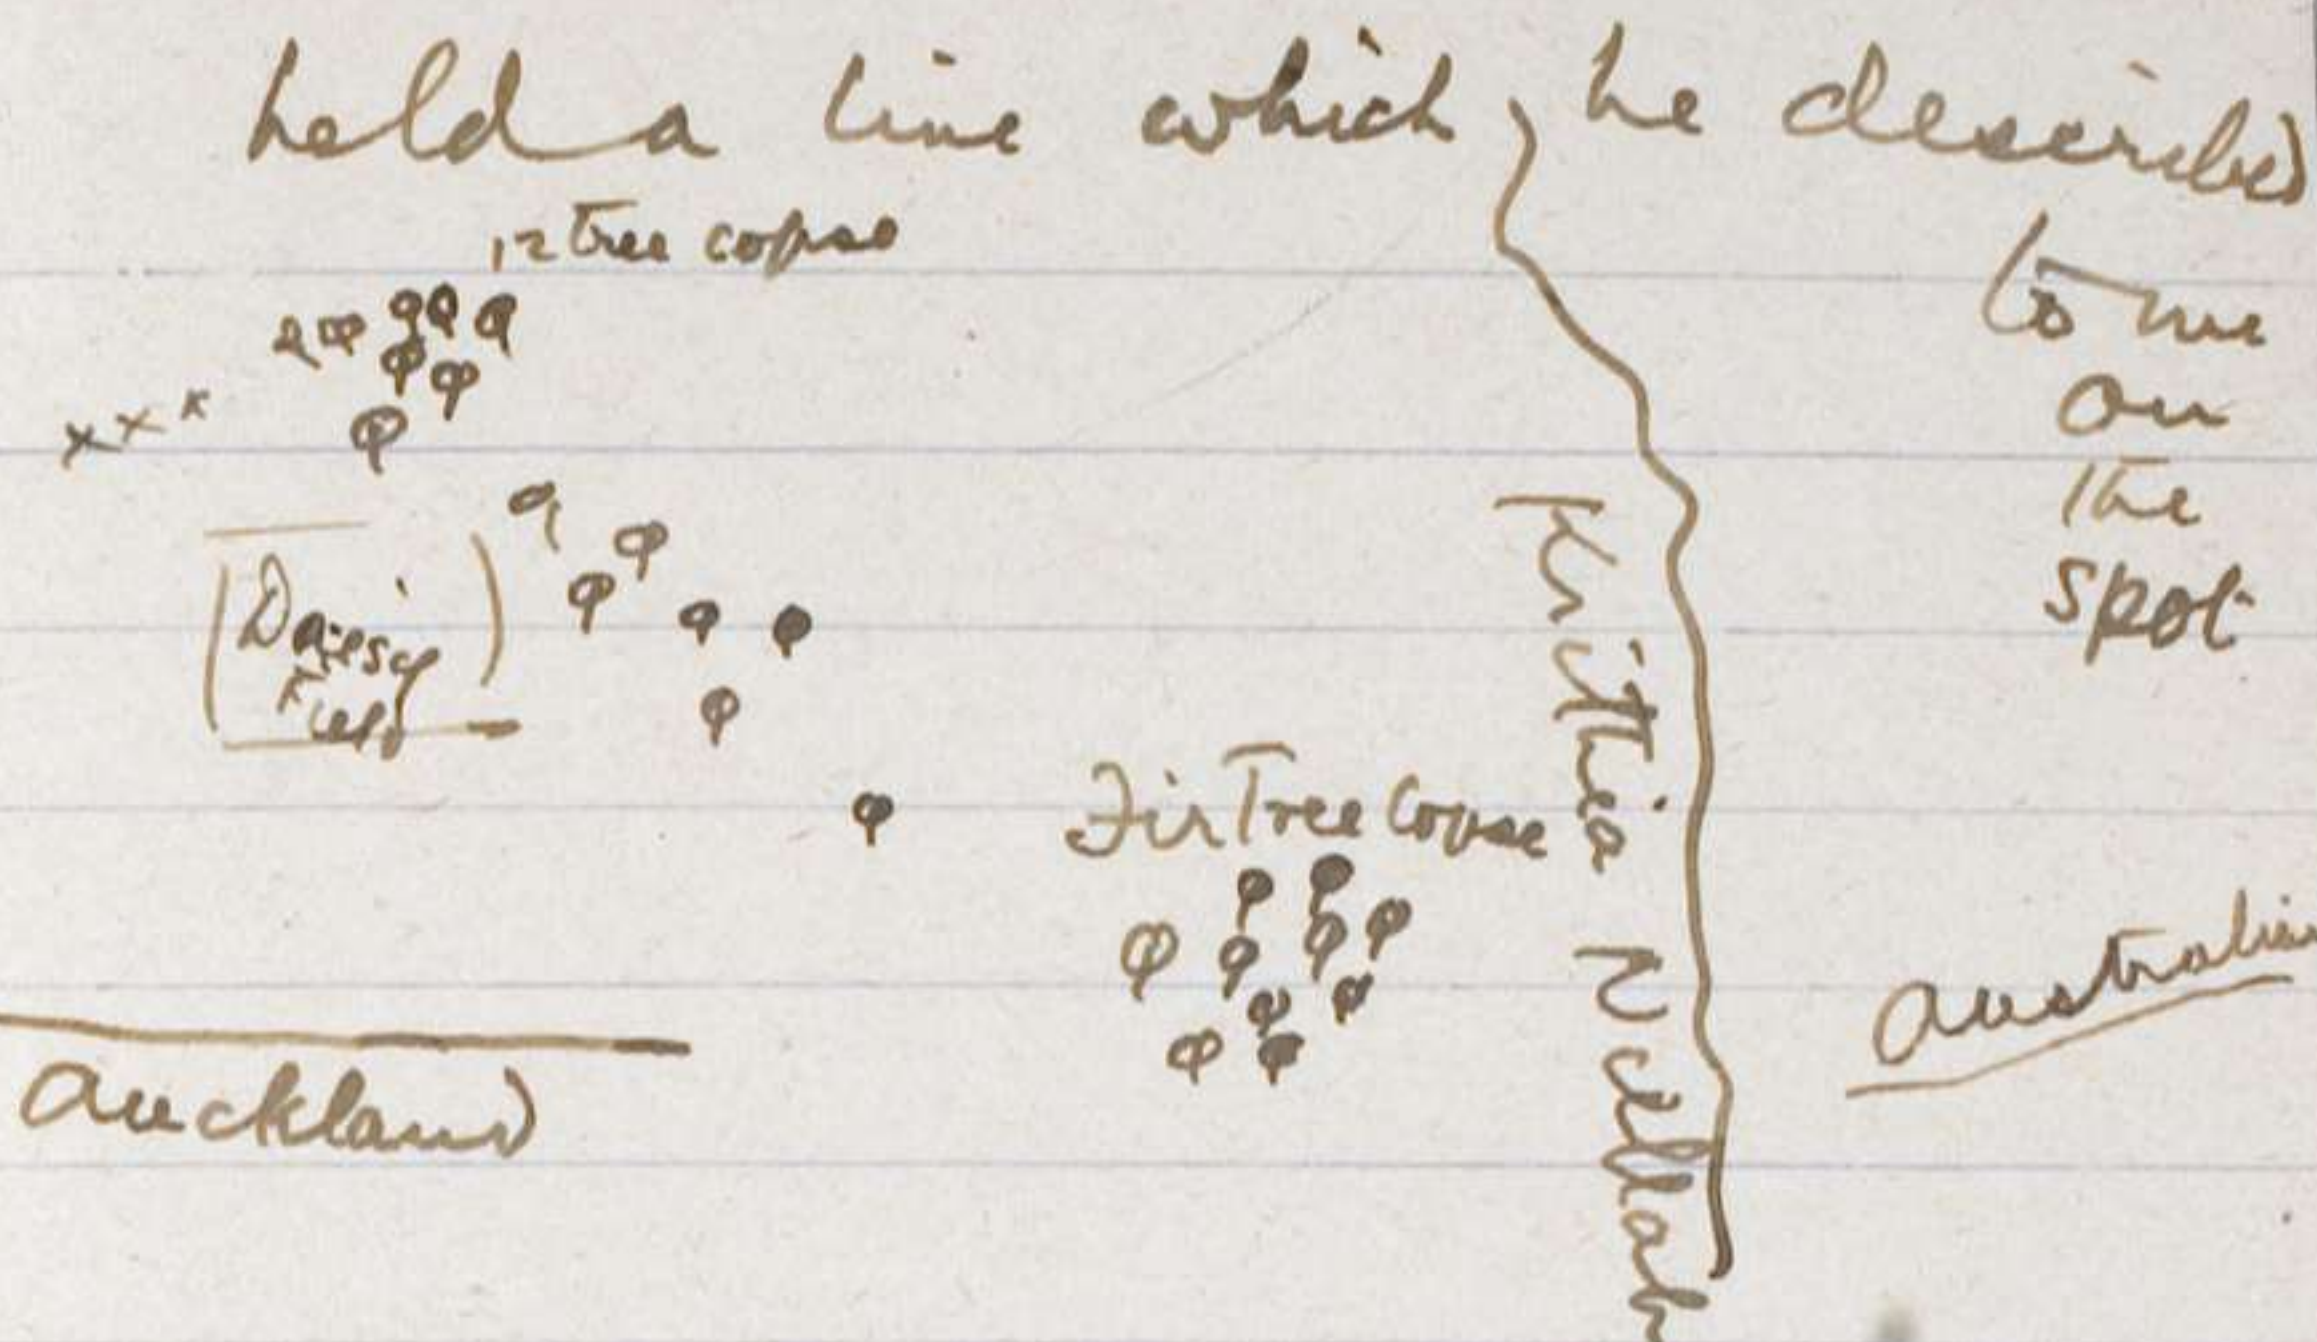 held a line which he described
to me
on
the
spot
12 tree copse
x x x
Daisy
Field
Fir Tree Copse
Krithia Nullah
Australian
Auckland